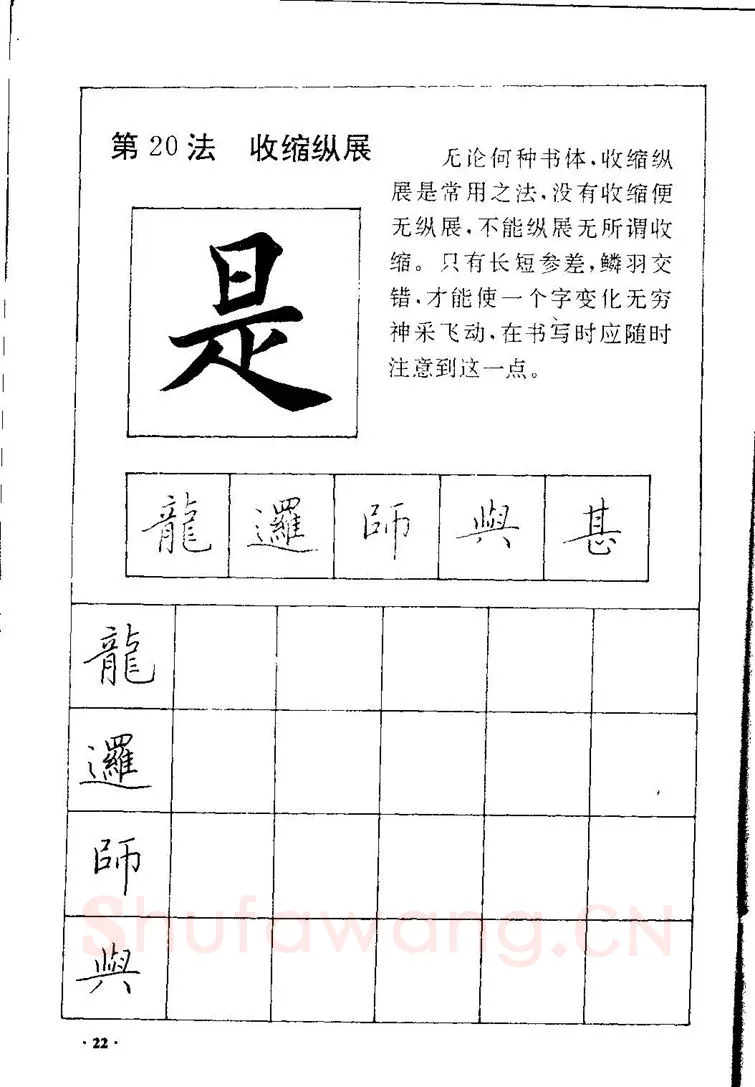 第20法 收缩纵展
无论何种书体，收缩纵
展是常用之法，没有收缩便
无纵展，不能纵展无所谓收
缩。只有长短参差，鳞羽交
错，才能使一个字变化无穷
神采飞动，在书写时应随时
注意到这一点。
是
龍 邏 師 與 甚
龍
邏
師
與
Shufawang.CN
·22·